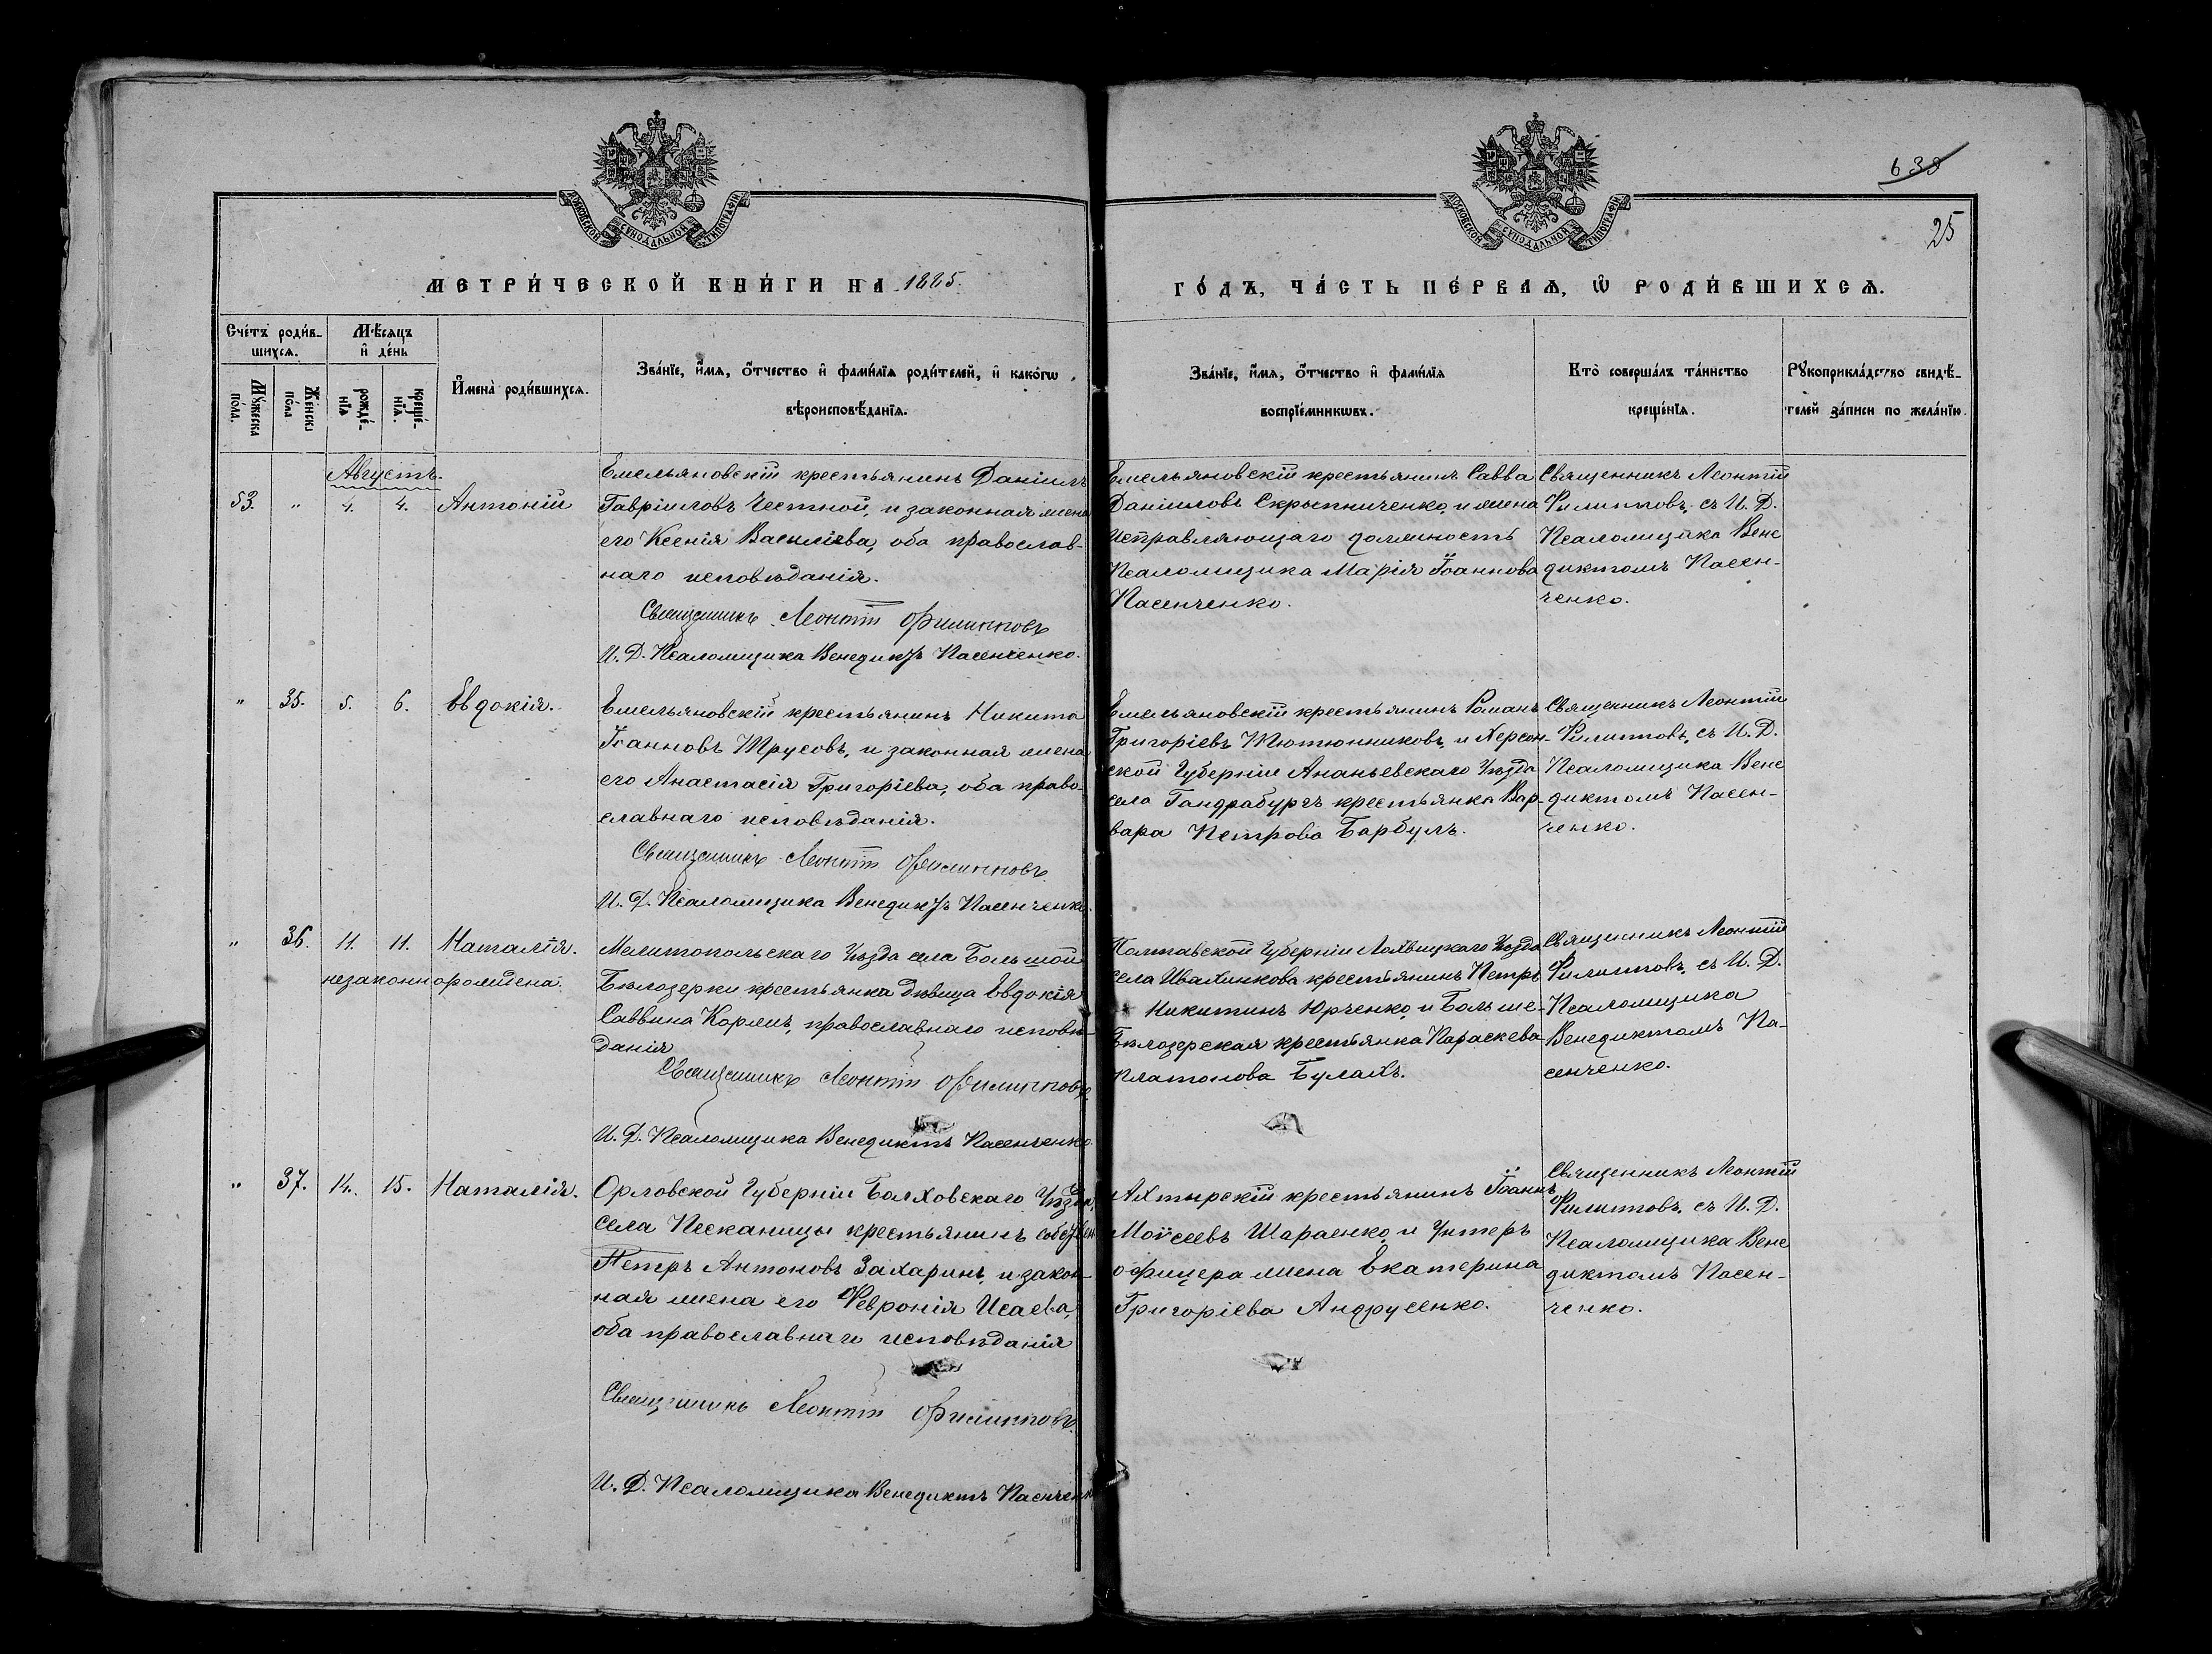 638
25
МОСКОВСКОЙ СѴНОДАЛЬНОЙ ТИПОГРАФІИ
МОСКОВСКОЙ СѴНОДАЛЬНОЙ ТИПОГРАФІИ
МЕТРИ́ЧЕСКОЙ КНИ́ГИ НА 1885.
ГО́ДЪ, ЧА́СТЬ ПЕ́РВАѦ, Ѽ РОДИ́ВШИХСѦ.
Сче́тъ роди́в-
шихсѧ.
Мѣ́сѧцъ
и҆ де́нь
Мꙋжеска
по́ла.
Же́нска
по́ла
рожде́-
нїѧ
креще́-
нїѧ.
И҆мена̀ роди́вшихсѧ.
Зва́нїе, и҆́мѧ, ѻ҆́тчество и҆ фами́лїѧ роди́телей, и҆ како́гѡ
вѣроисповѣ́данїѧ.
Зва́нїе, и҆́мѧ, ѻ҆́тчество и҆ фами́лїѧ
воспрїе́мникѡвъ.
Кто̀ соверша́лъ та́инство
креще́нїѧ.
Рꙋкоприкла́дство свидѣ́-
телей за́писи по жела́нїю.
Августъ.
53. " 4. 4. Антоній
Емельяновскій крестьянинъ Даніилъ
Гавріиловъ Честной, и законная жена
его Ксенія Василіева, оба православ-
наго исповѣданія.
Священникъ Леонтій Филипповъ
И. Д. Псаломщика Венедиктъ Пасенченко.
Емельяновскій крестьянинъ Савва
Даніиловъ Скрыпниченко, и жена
Исправляющаго должность
Псаломщика Марія Іоаннова
Пасенченко.
Священникъ Леонтій
Филипповъ, съ И. Д.
Псаломщика Вене
диктомъ Пасен-
ченко.
" 35. 5. 6. Евдокія.
Емельяновскій крестьянинъ Никита
Іоанновъ Трусовъ, и законная жена
его Анастасія Григоріева, оба право-
славнаго исповѣданія.
Священникъ Леонтій Филипповъ
И. Д. Псаломщика Венедиктъ Пасенченко.
Емельяновскій крестьянинъ Романъ
Григоріевъ Тютюнниковъ, и Херсон-
ской Губерніи Ананьевскаго Уѣзда
села Гандрабургъ крестьянка Вар-
вара Петрова Барбулъ.
Священникъ Леонтій
Филипповъ, съ И. Д.
Псаломщика Вене
диктомъ Пасен-
ченко.
" 36. 11. 11. Наталія.
незаконнорожденна.
Мелитопольскаго Уѣзда села Большой
Бѣлозерки крестьянка дѣвица Евдокія
Саввина Коржъ, православнаго исповѣ-
данія
Священникъ Леонтій Филипповъ
И. Д. Псаломщика Венедиктъ Пасенченко.
Полтавской Губерніи Лохвицкаго Уѣзда
села Ивахникова крестьянинъ Петръ
Никитинъ Юрченко, и Больше-
Бѣлозерская крестьянка Параскева
Платонова Булахъ.
Священникъ Леонтій
Филипповъ, съ И. Д.
Псаломщика
Венедиктомъ Па-
сенченко.
" 37. 14. 15. Наталія.
Орловской Губерніи Болховскаго Уѣзда,
села Песканицы крестьянинъ собствен
Петръ Антоновъ Захаринъ, и закон-
ная жена его Февронія Исаева,
оба православнаго исповѣданія
Священникъ Леонтій Филипповъ
И. Д. Псаломщика Венедиктъ Пасенченко
Ахтырскій крестьянинъ Іоаннъ
Моѵсеевъ Шараенко, и Унтеръ
офицера жена Екатерина
Григоріева Андрусенко.
Священникъ Леонтій
Филипповъ, съ И. Д.
Псаломщика Вене
диктомъ Пасен-
ченко.